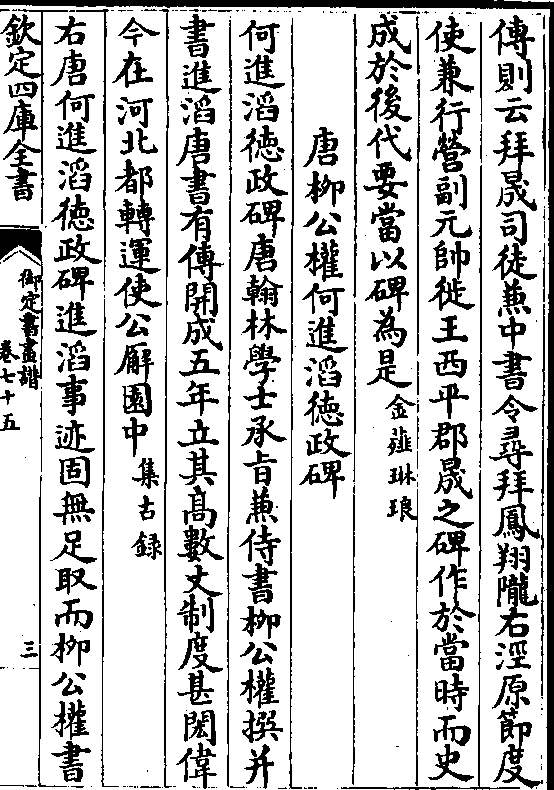 傳則云拜晟司徒兼中書令尋拜鳳翔隴右涇原節度
使兼行營副元帥徙王西平郡晟之碑作於當時而史
成於後代要當以碑為是金薤琳琅
唐柳公權何進滔徳政碑
何進滔徳政碑唐翰林學士承旨兼侍書柳公權撰并
書進滔唐書有傳開成五年立其髙數丈制度甚閎偉
今在河北都轉運使公廨園中集古録
右唐何進滔徳政碑進滔事迹固無足取而柳公權書
欽定四庫全書
御定書畫譜
卷七十五
三